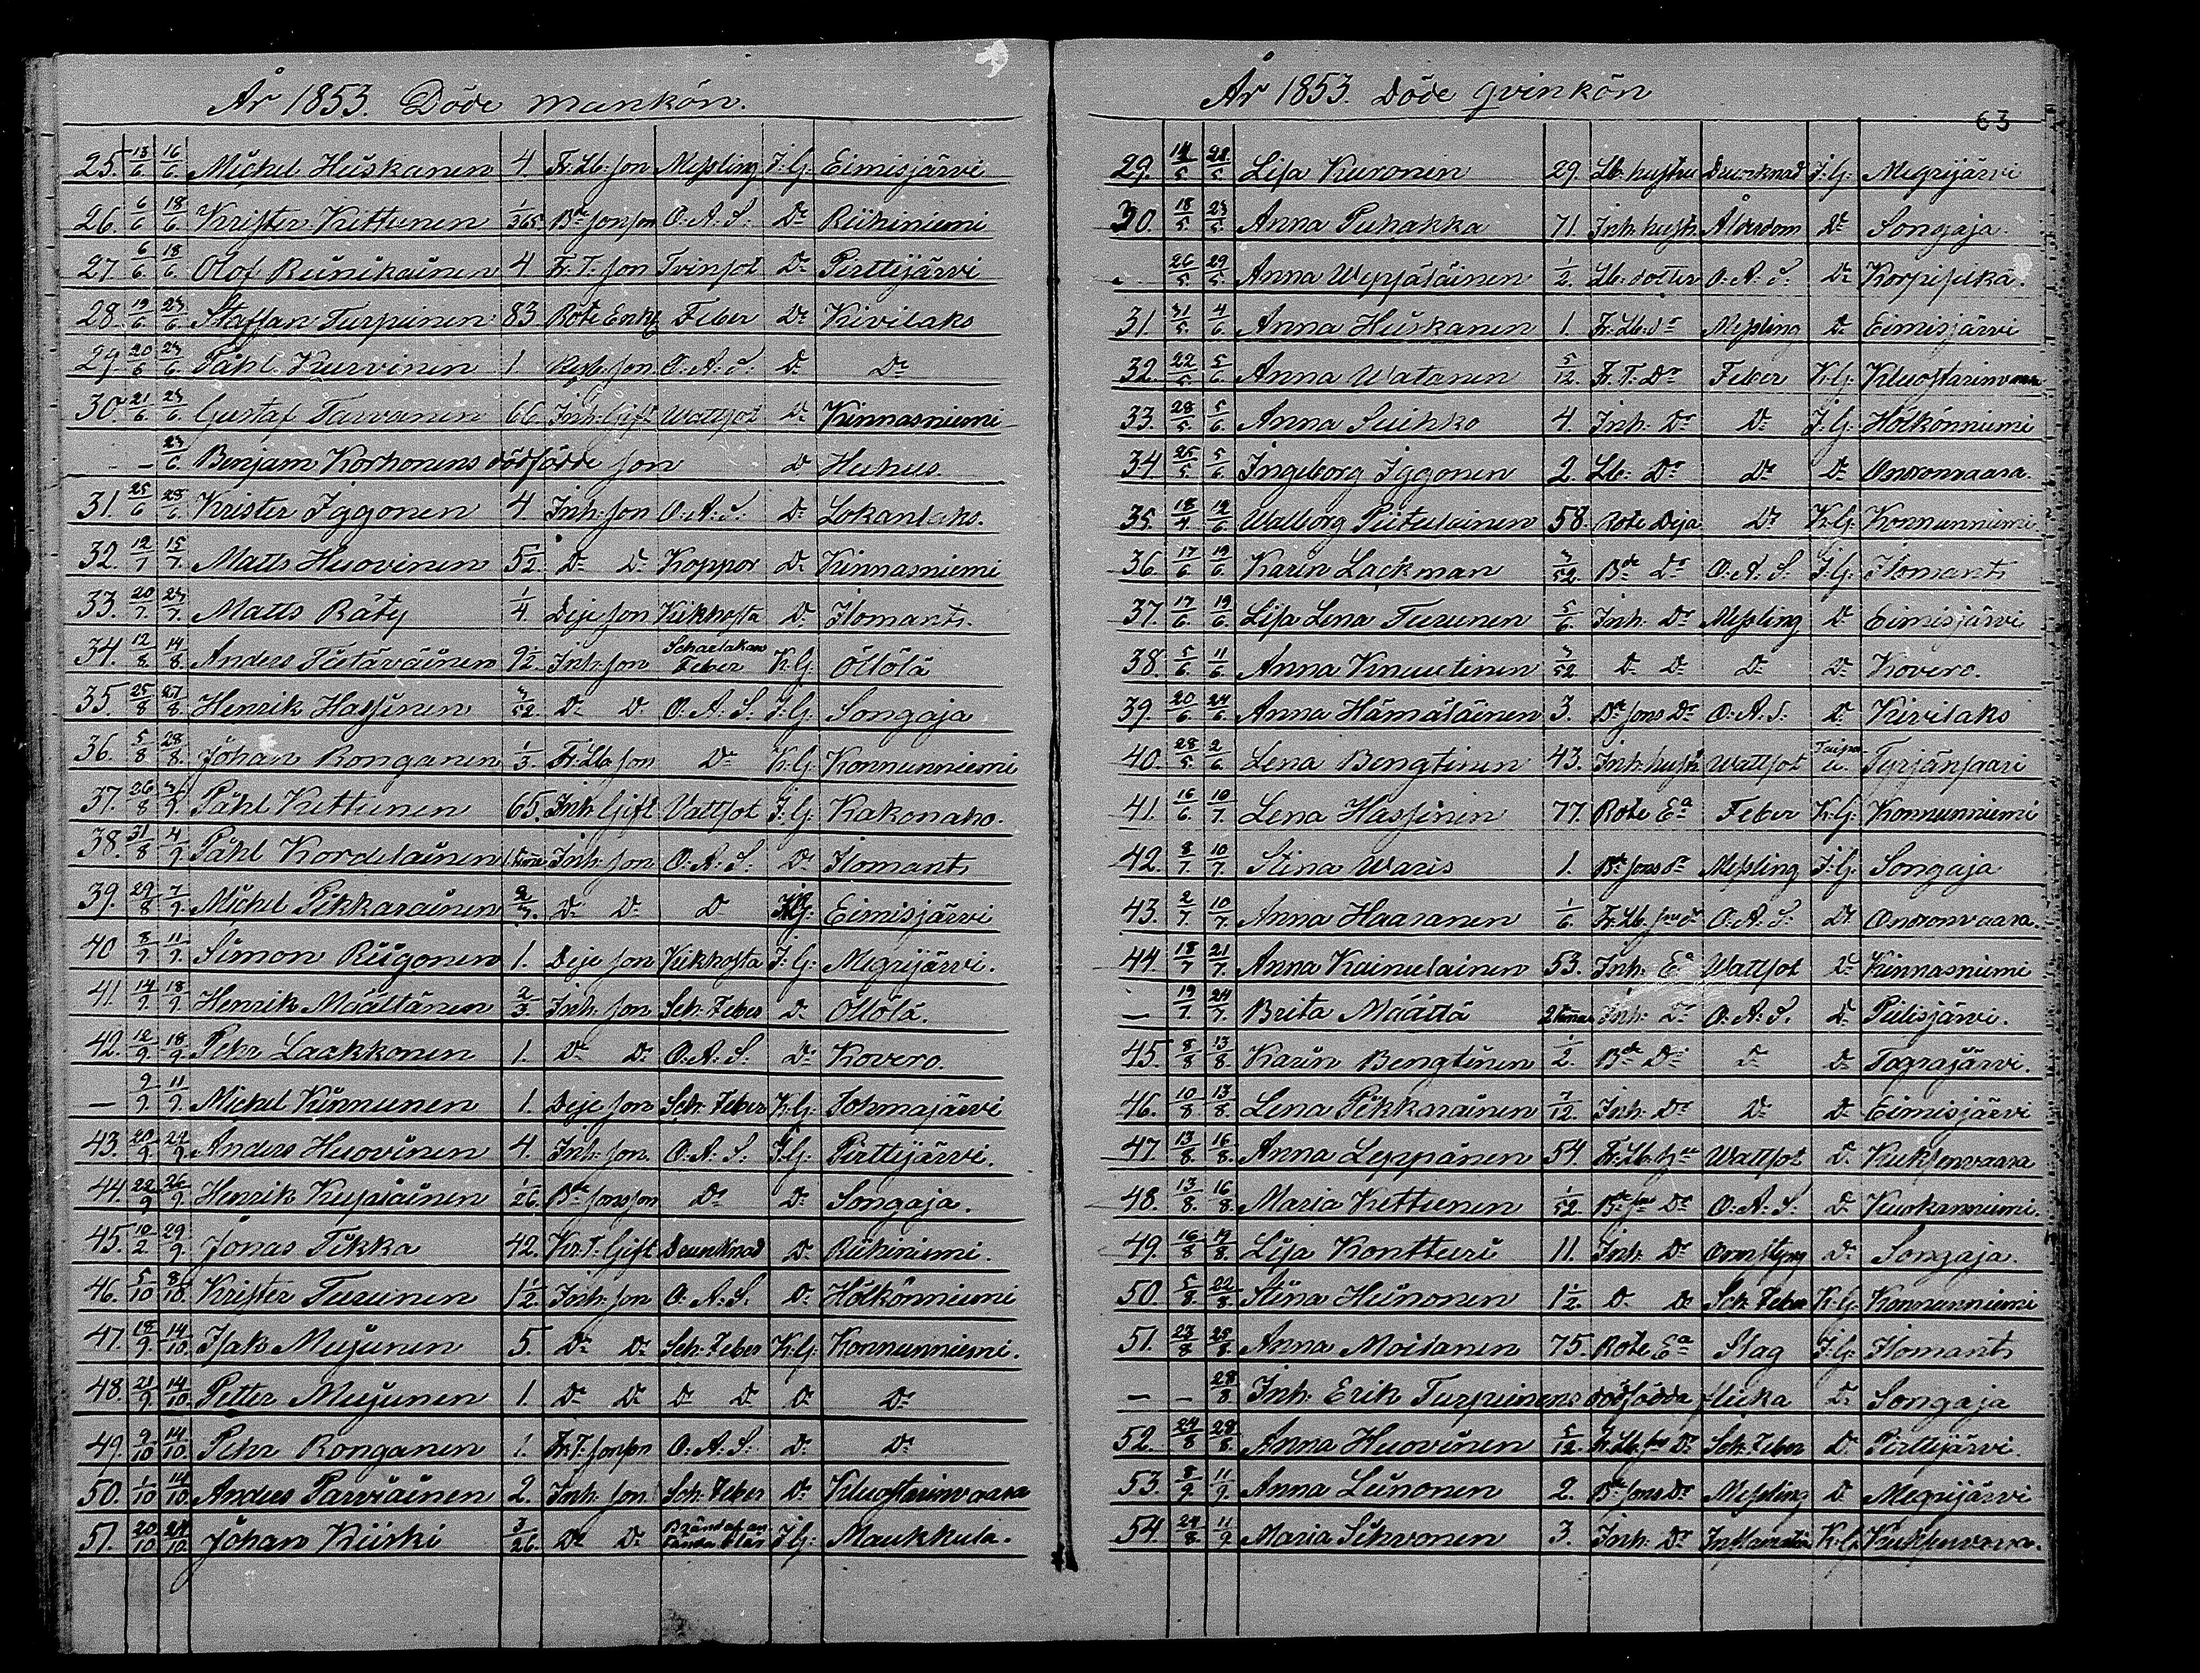 År 1853. Döde mankön.
25. 13/6 16/6 Michel Huskanen 4. Fr. Lb. son Messling I:G: Eimisjärvi
26. 6/6 18/6 Krister Kettunen 1/365 Bde sonson O. A. S. Do Riihiniemi
27 6/6 18/6 Olof Kuinikainen 4 Tvinsot Do Pirttijärvi
28. 19/6 23/6 Staffan Turpeinen 83 Rote Enkl Feber Do Kivilaks
29. 20/6 23/6 Påhl Kurvinen 1. son O. A. S. Do Do
30. 21/6 23/6 Gustaf Tarvanen 66. Inh: Gift Wattsot Do Kinnasniemi
- - 23/6 Benjam Korhonens dödfödde son Do Huhus.
31. 25/6 28/6 Krister Iggonen 4. Inh: son O. A. S. Do Lokanlaks.
32. 12/7 15/7 Matts Huovinen 5 1/2 Do Do Koppor Do Kinnasniemi
33. 20/7. 23/7. Matts Räty 1/4 Deje son Kikhosta Do Ilomants.
34. 12/8 14/8 Anders Tietäväinen 9 1/2 Inh: son Scharlakans Feber K:G: Öllölä
35. 25/8 27/8. Henrik Hassinen 3/52. Do Do O: A: S: I:G: Songaja
36. 5/8 28/8. Johan Ronganen 1/3. Fr: Lb: son Do K:G: Konnunniemi
37. 26/8 Påhl Kettunen 65. Inh: Gift Vattsot I:G: Kakonaho.
38. 31/8 4/9 Påhl Kordelainen Inh: son O: A: S. Do Ilomants
39. 29/8 7/9. Michel Pikkarainen Do Do Do I:G: Eimisjärvi
40 8/9. 11/9. Simon Riigonen 1. Deje son Kikhosta I:G: Megrijärvi.
41. 14/9. 18/9. Henrik Määttänen 2/3. Inh: son Sch: Feber Do Öllölä.
42. 12/9. 18/9. Pehr Laakkonen 1. Do Do O: A: S. Do Kovero.
— 9/9. 11/9. Michel Kinnunen 1. Deje son Sch: Feber K:G: Tohmajärvi
43. 20/9 Anders Huovinen 4. Inh: son O: A: S: I:G: Pirttijärvi.
44. 22/9 26/9 Henrik Kupiainen 1/26. Bde sonson Do Do Songaja.
45. 10/2 29/9. Jonas Tikka 42. Kr: T: Gift Drunknad Do Riihiniemi.
46. 5/10 8/10 Krister Turunen 1 1/2. Inh: son O: A: S. Do Hölkönniemi
47. 18/9. 14/10. Isak Mujunen 5. Do Do Sch: Feber K:G: Konnunniemi.
48. 21/9. 14/10. Petter Mujunen 1. Do Do Do Do Do Do
49. 9/10 14/10. Pehr Ronganen 1. Fr: T: sonson O: A: S: Do Do
50. 1/10 14/10 Anders Parviainen 2. Inh: son Sch: Feber Do Kluostarinvaara
51. 20/10 24/10 Johan Kiiski 3/26. Do Do I:G: Maukkula.
År 1853. Döde qvinkön
63
29. 14/5 28/5 Lisa Kuronen 29. Lb: hustru Drunknad I:G: Megrijärvi
30. 18/5 23/5. Anna Puhakka 71. Inh: hustr. Ålderdom Do Songaja
26/5 29/5. Anna Weppäläinen 1/2. Lb: dotter O: A: S: Do Korpiselkä.
31 31/5 4/6 Anna Huskanen 1. Fr: Lb: Do Messling Do Eimisjärvi
32. 22/5 5/6. Anna Watanen 5/12. Fr: T: Do Feber K:G: Kluostarinvaara
33. 28/5 5/6 Anna Suihko 4. Inh: Do Do I:G: Hölkönniemi
34. 25/5 5/6. Ingeborg Iggonen 2. Lb: Do Do Do Onronvaara.
35. 18/4 12/6. Walborg Piitulainen 58. Rote Deja Do K:G: Konnunniemi
36. 17/6 19/6. Karin Lackman 3/52. Bde Do O: A: S: I:G: Ilomants
37. 17/6. 19/6. Lisa Lena Turunen 5/6. Inh: Do Messling Do Eimisjärvi
38. 5/6 11/6 Anna Knuutinen 3/52 Do Do Do Do Kovero.
39. 20/6 24/6 Anna Hämäläinen 3. Do sons Do O: A: S: Do Kivilaks
40. 28/5 2/6 Lena Bengtinen 43. Inh: hustr Wattsot Tyrjänsaari
41. 16/6. 10/7. Lena Hassinen 77. Rote Ea Feber K:G: Konnunniemi
42. 8/7. 10/7. Stina Waris 1. Bde sons Do Messling I:G: Songaja
43. 2/7. 10/7. Anna Haaranen 1/6. Fr: Lb: O: A: S: Do Onronvaara.
44. 18/7 21/7. Anna Kainulainen 53. Inh: Ea Wattsot Do Kinnasniemi
— 19/7. 24/7. Brita Määttä 2 timar Inh: Do O: A: S. Do Pielisjärvi.
45. 8/8 13/8. Karin Bengtinen 1/2. Bde Do Do Do Tograjärvi.
46. 10/8 13/8. Lena Pikkarainen 7/12. Inh: Do Do Do Eimisjärvi
47. 13/8. 16/8. Anna Leppänen 54. Fr: Lb: Wattsot Do Kuksenvaara
48. 13/8. 16/8. Maria Kettunen 1/52. Do O: A: S: Do Kuokanniemi.
49. 16/8 19/8. Lisa Kontturi 11. Inh: Do Ormstyng Do Songaja.
50. 5/8. 22/8. Stina Heinonen 1 1/2. Do Do Sch: Feber K:G: Konnunniemi
51. 23/8 25/8. Anna Moilanen 75. Rote Ea Slag I:G: Ilomants
— — 28/8 Inh: Erik Turpeinens dödfödda flicka Do Songaja
52. 24/8 28/8. Anna Huovinen 5/12. Fr: Lb: Do Sch: Feber Do Pirttijärvi.
53. 8/9 11/9. Anna Leinonen 2. Bde sons Do Messling Do Megrijärvi
54. 11/9 Maria Sikvonen 3. Inh: Do K:G: